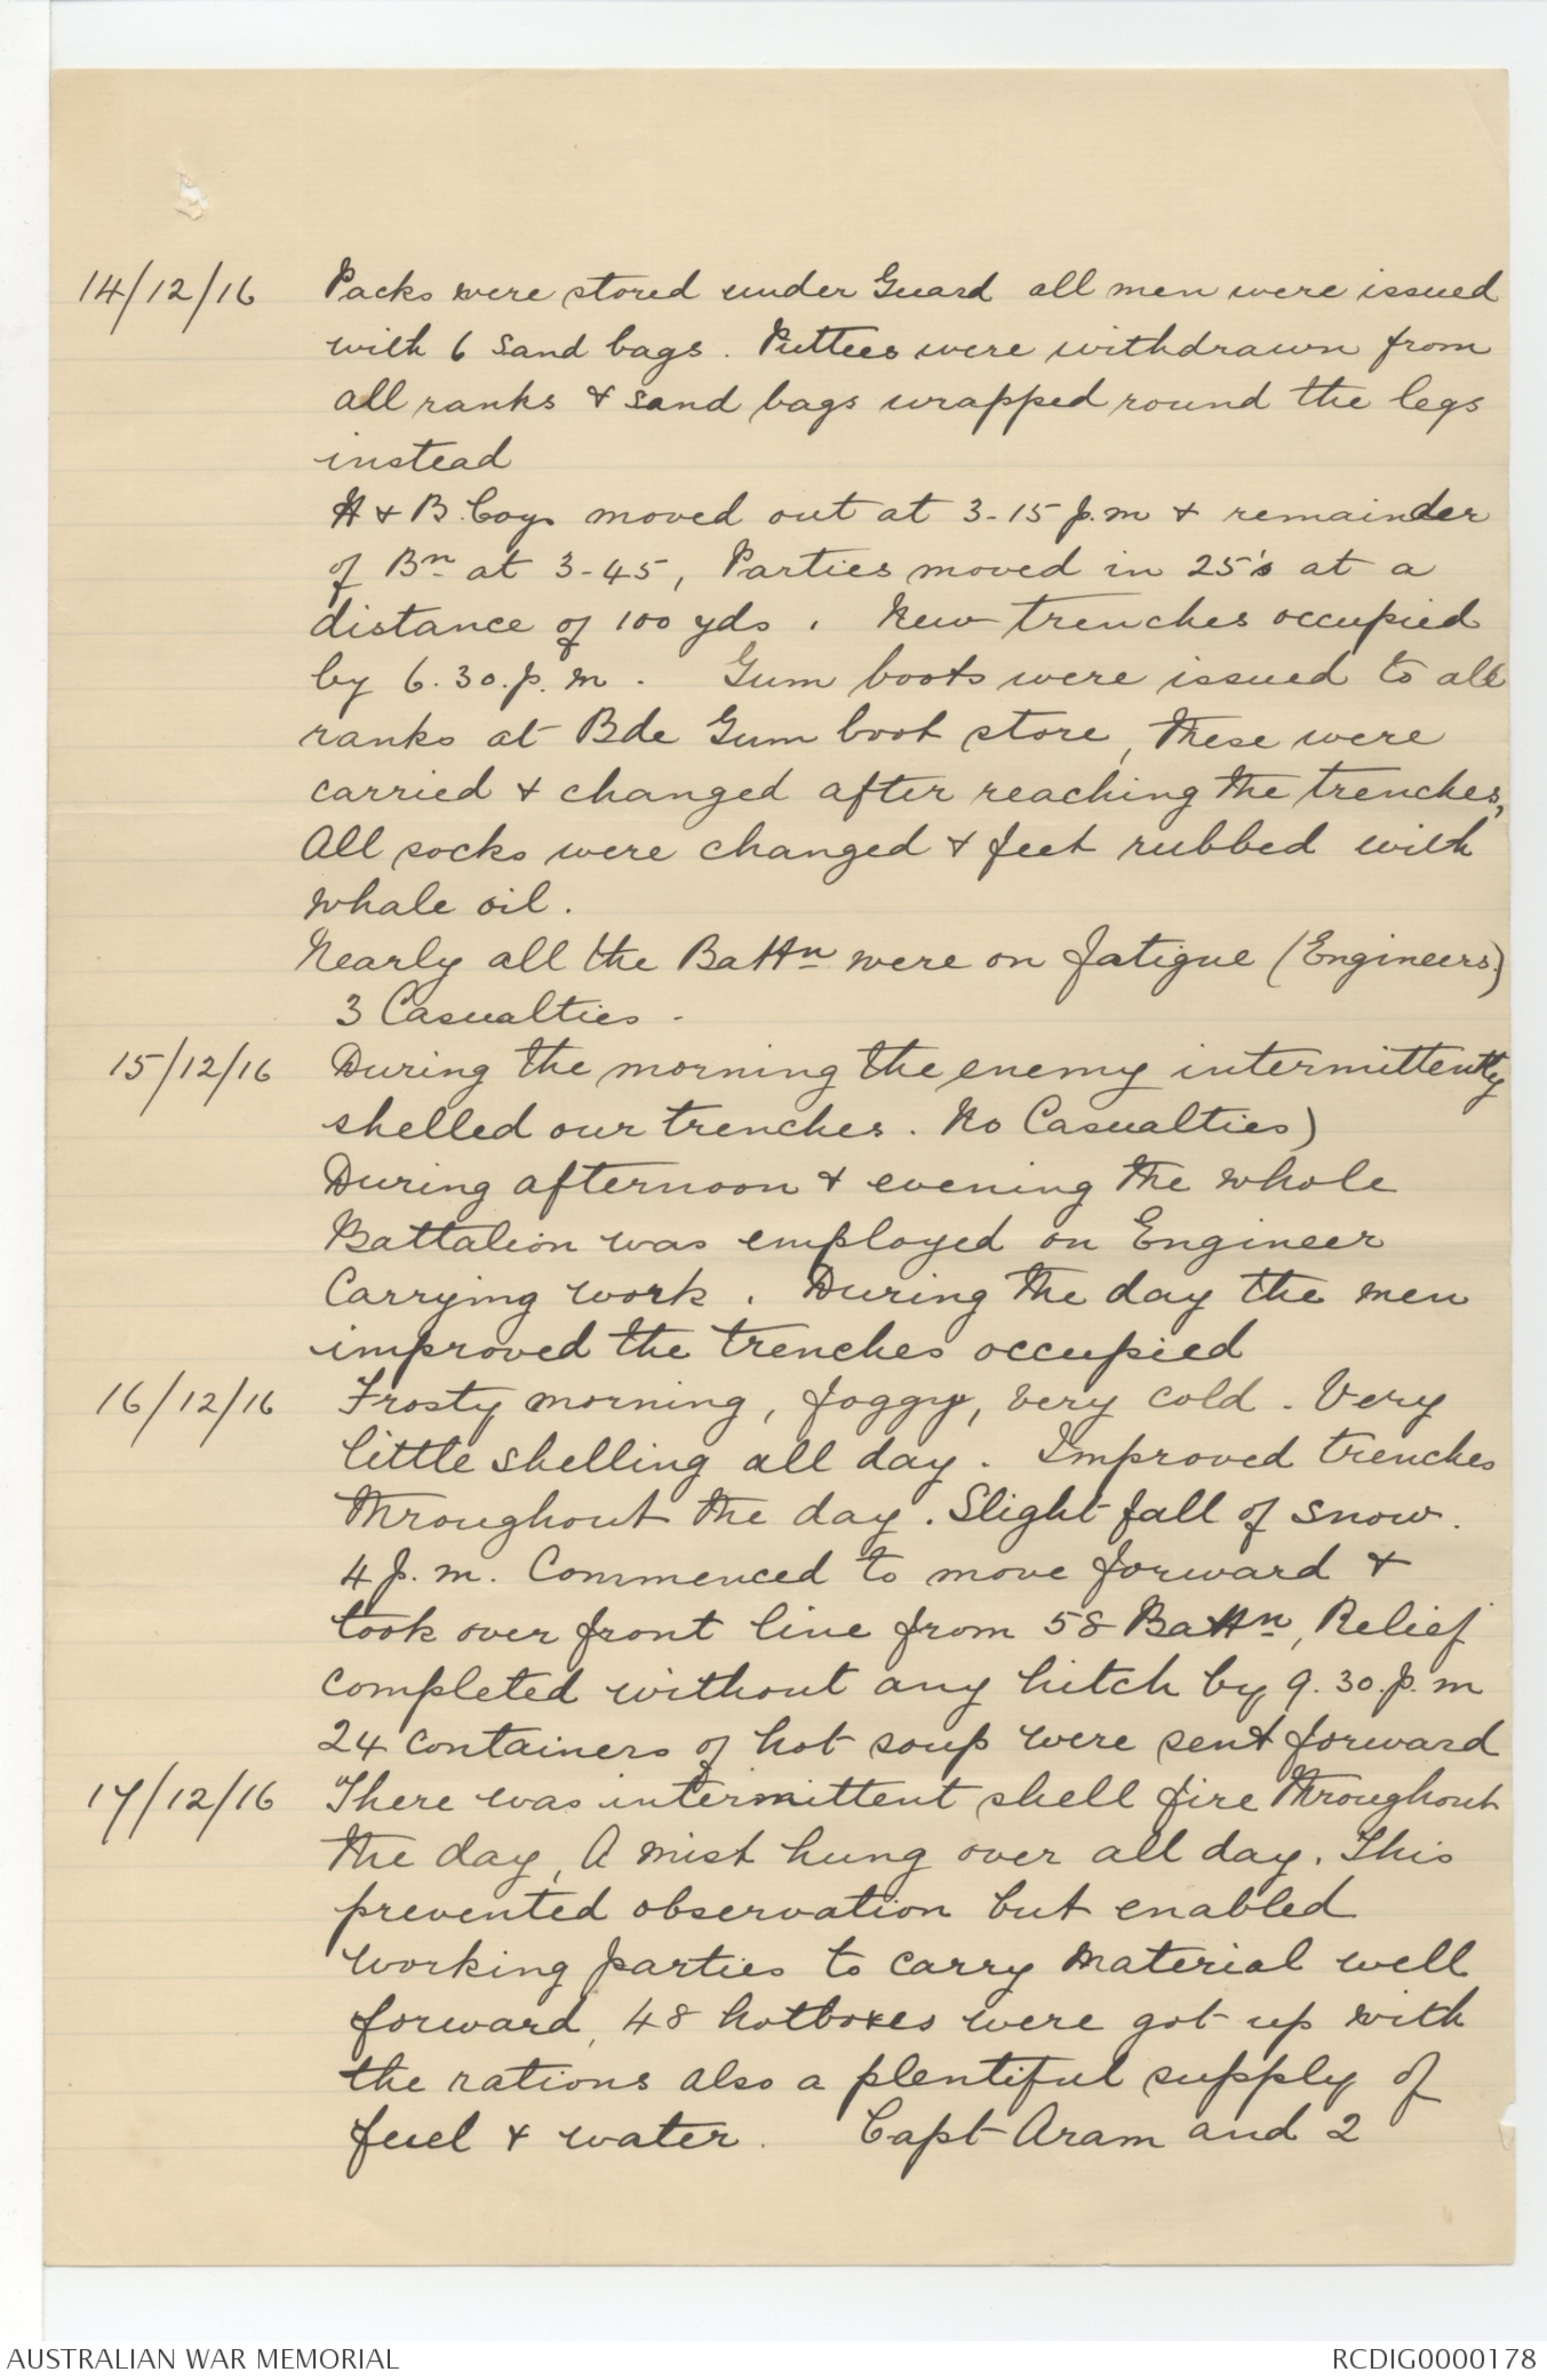 14/12/16 Packs were stored under Guard all men were issued
with 6 Sand bags. Puttees were withdrawn from
all ranks & sand bags wrapped round the legs
instead
A & B. Coys moved out at 3-15 p.m & remainder
of Bn at 3-45, Parties moved in 25's at a
distance of 100 yds. New trenches occupied
by 6.30.p.m. Gum boots were issued to all
ranks at Bde Gum boot store, these were
carried & changed after reaching the trenches,
All socks were changed & feet rubbed with
whale oil.
Nearly all the Battn were on fatigue (Engineers)
3 Casualties -
15/12/16 During the morning the enemy intermittently
shelled our trenches. No Casualties)
During afternoon & evening the whole
Battalion was employed on Engineer
Carrying work. During the day the men
improved the trenches occupied
16/12/16 Frosty morning, foggy, very cold. Very
little shelling all day. Improved trenches
throughout the day. Slight fall of snow.
4 p.m. Commenced to move forward &
took over front line from 58 Battn, Relief
completed without any hitch by 9.30.p.m
24 containers of hot soup were sent forward
17/12/16 There was intermittent shell fire throughout
the day, A mist hung over all day. This
prevented observation but enabled
working parties to carry material well
forward, 48 hotboxes were got up with
the rations also a plentiful supply of
fuel & water. Capt Aram and 2
AUSTRALIAN WAR MEMORIAL
RCDIG0000178